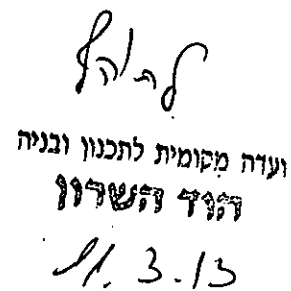 ועדה מקומית לתכנון ובניה
הוד השרון
11.3.13